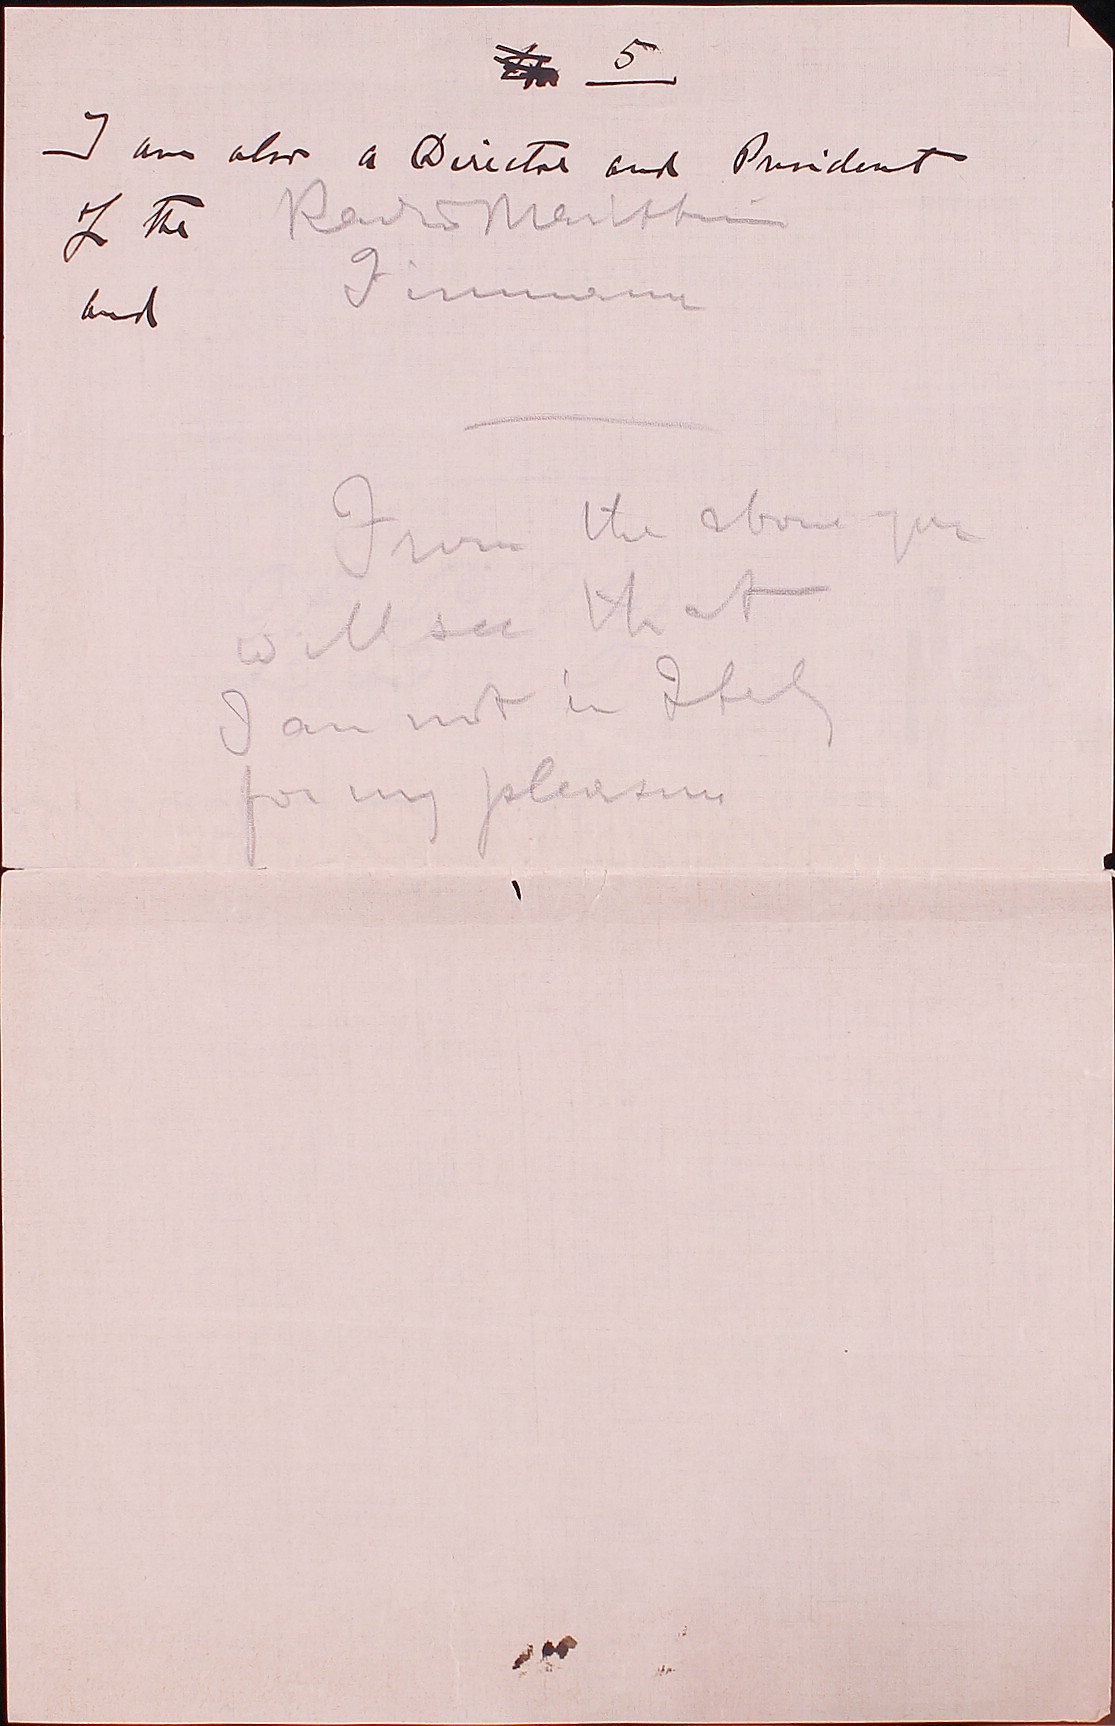 5
I am also a Director and President
of the Radio Marittima
and Fiumana
From the above you
will see that
I am not in Italy
for my pleasure